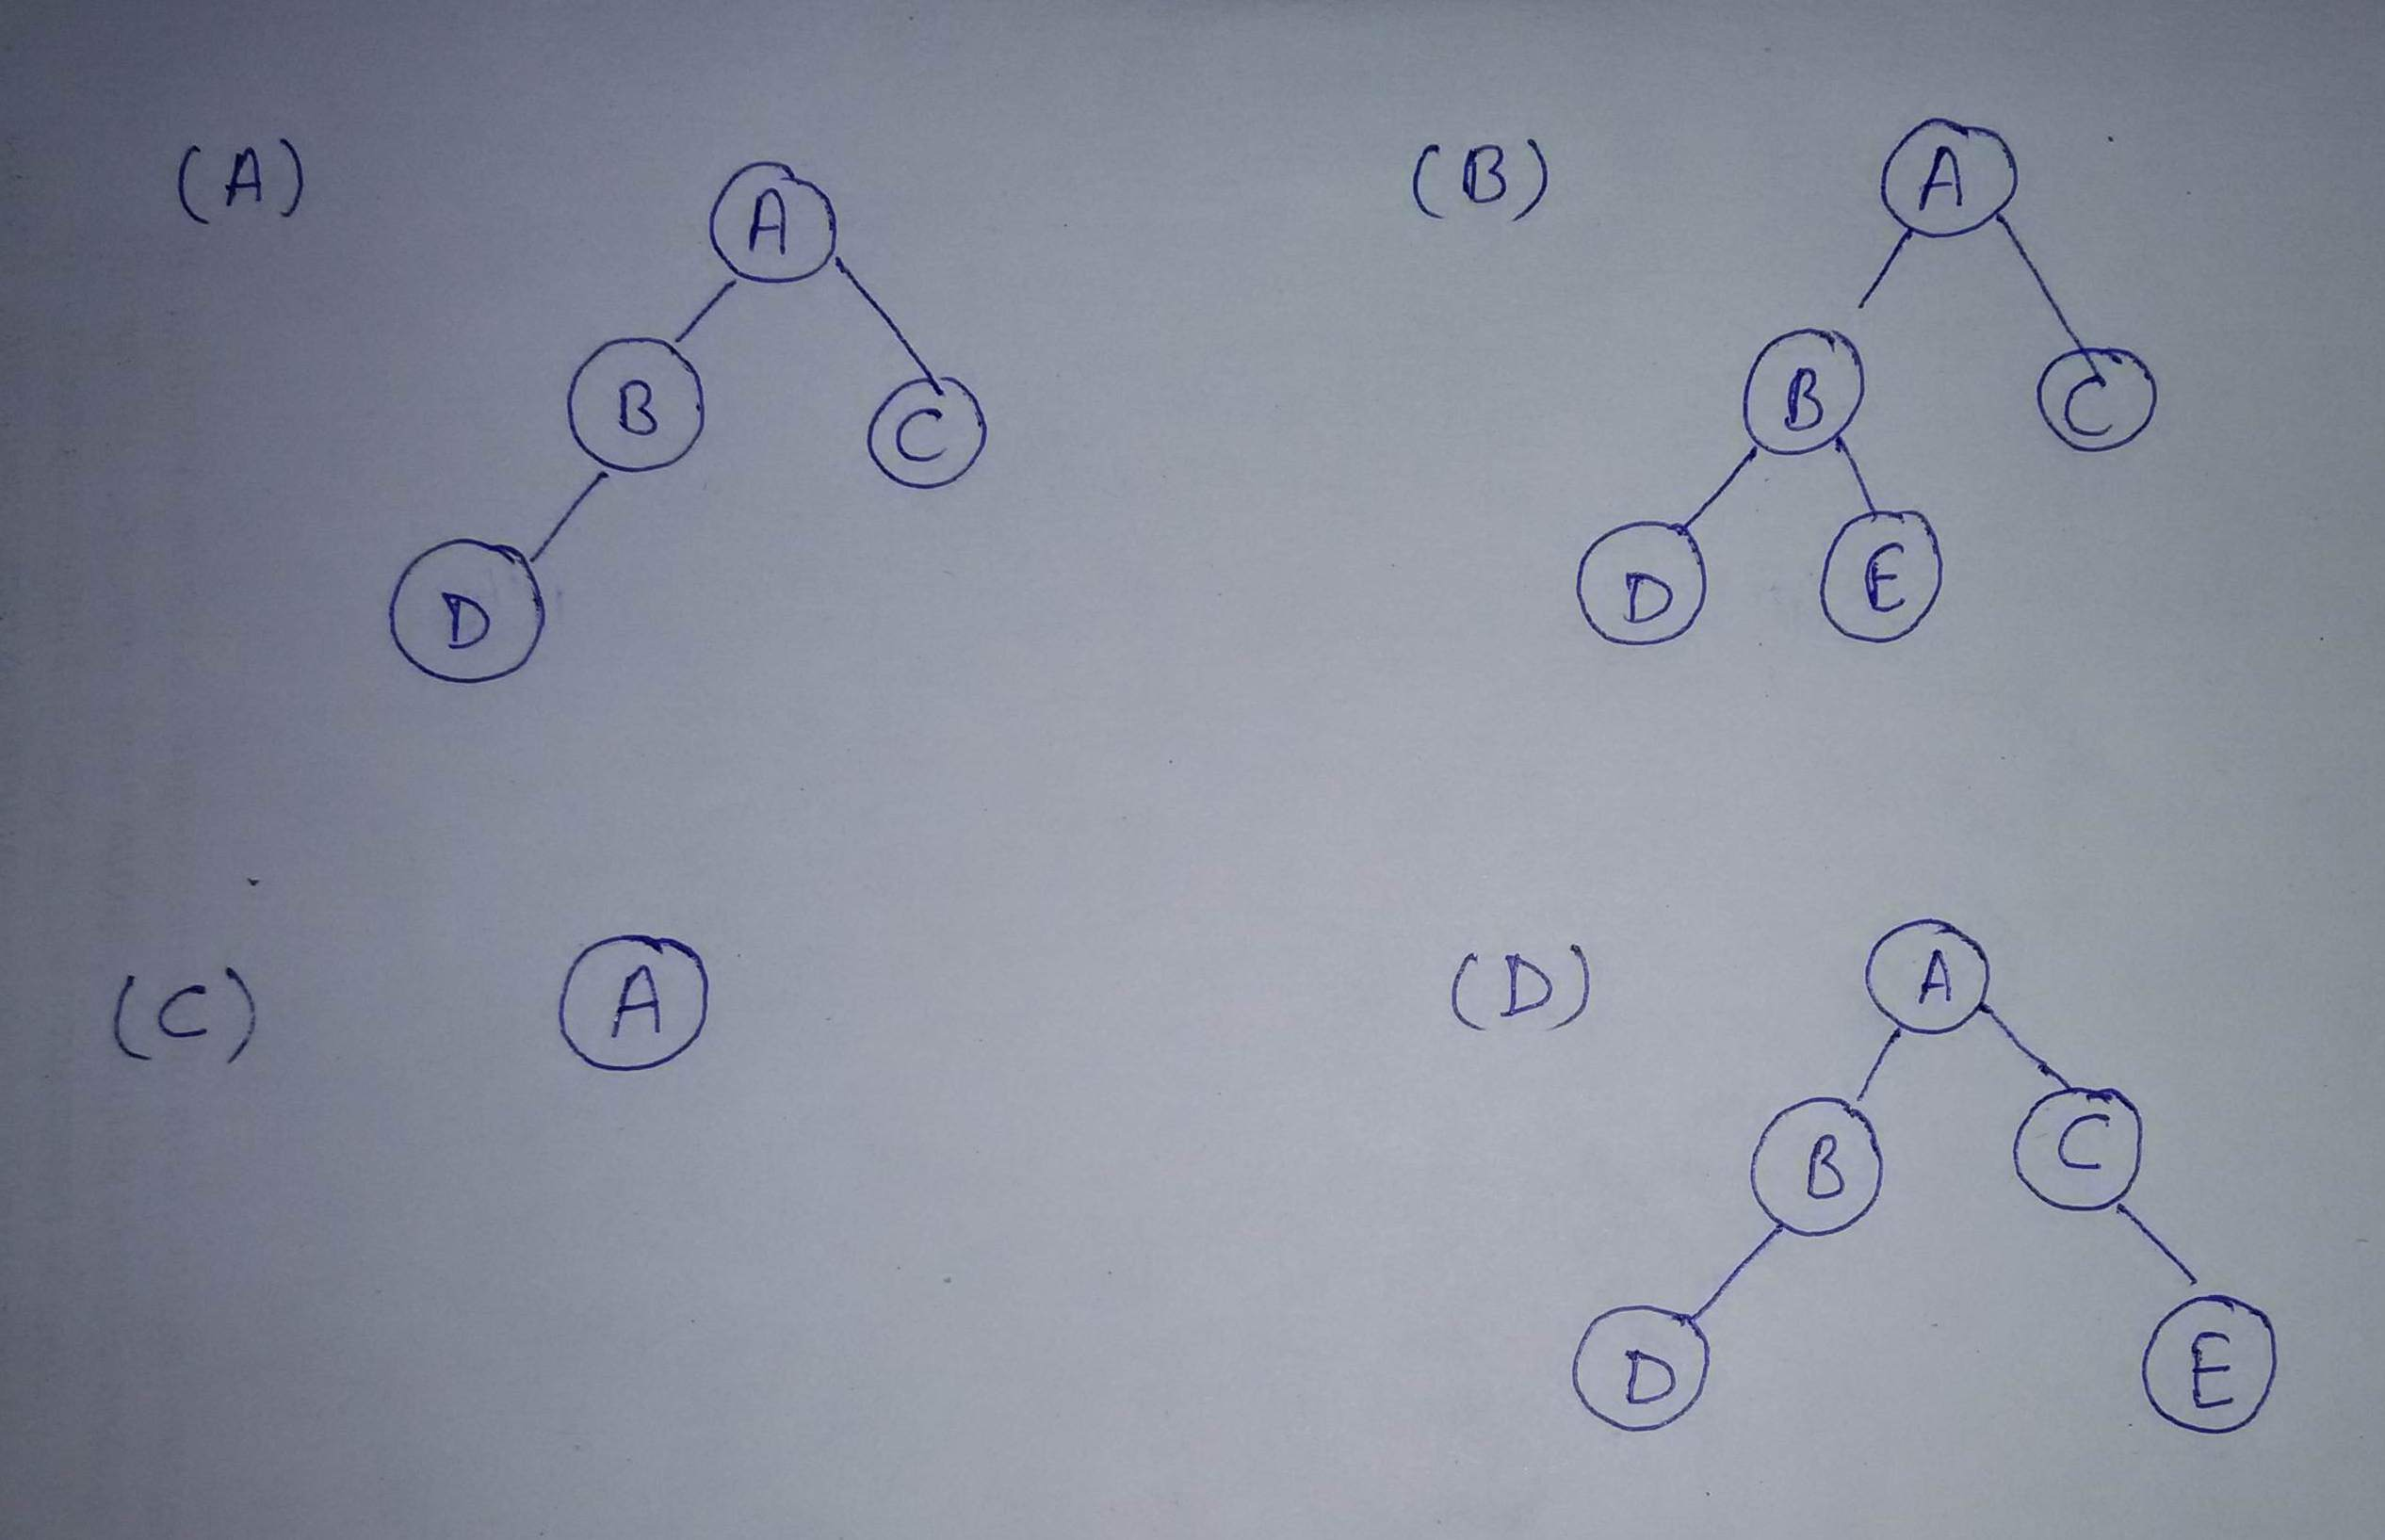 (A)
A
B
C
D
(B)
A
B
C
D
E
(C)
A
(D)
A
B
C
D
E